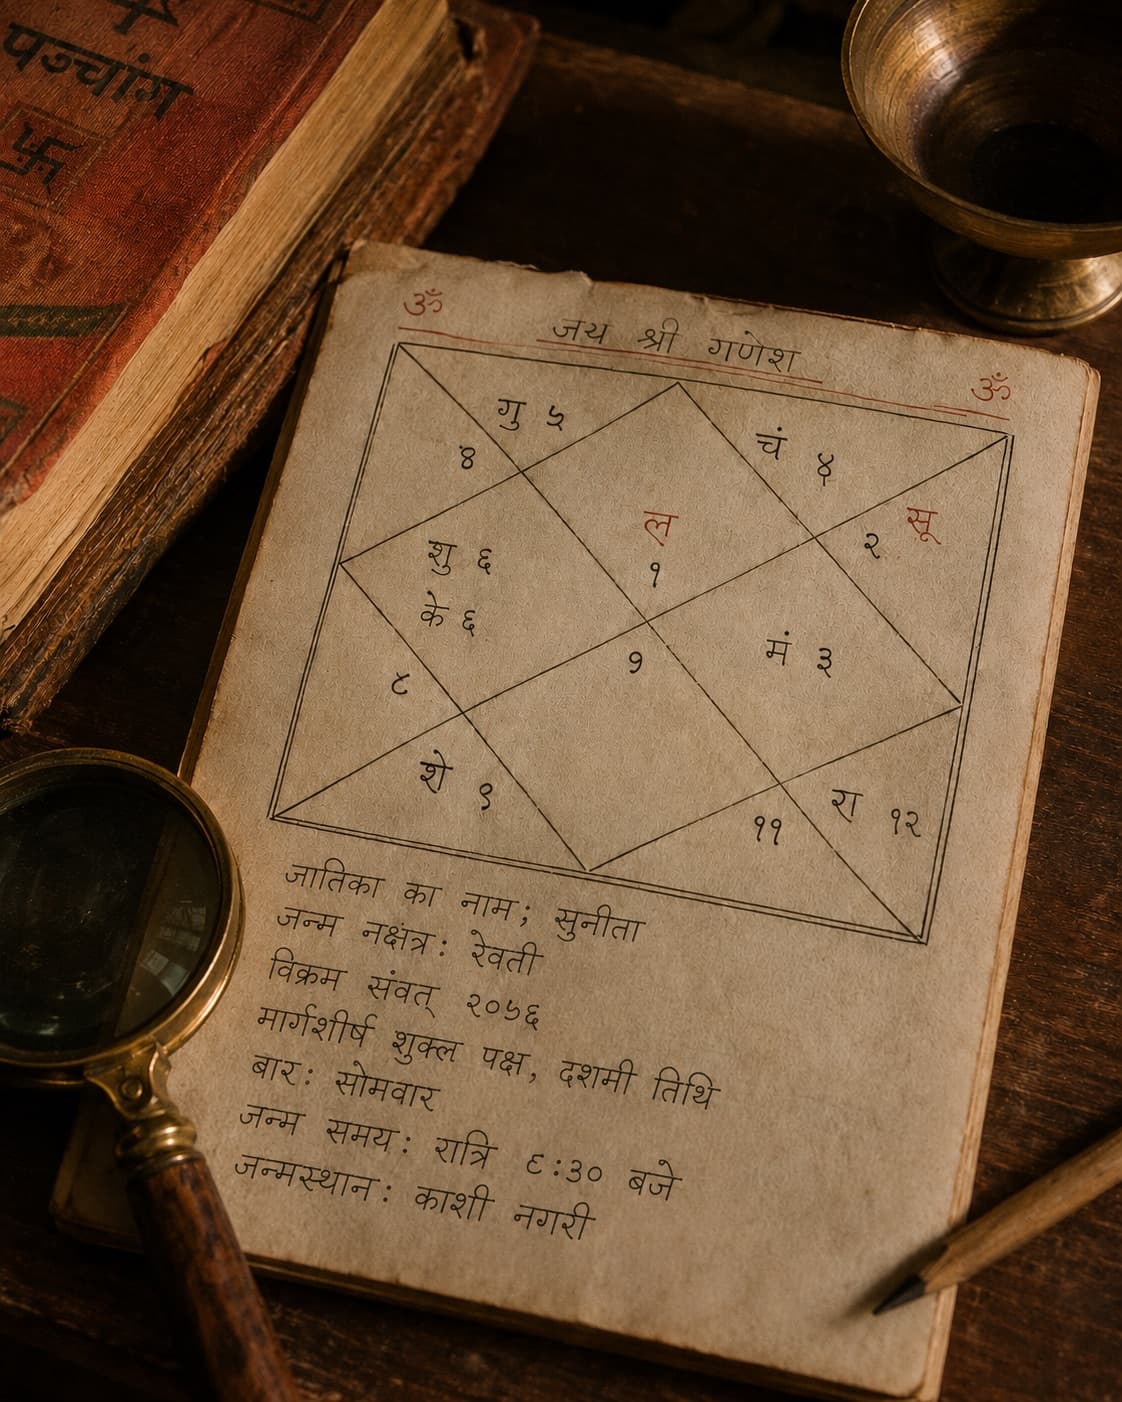 पञ्चांग
ॐ
जय श्री गणेश
ॐ
गु ५
चं ४
४
सू
२
ल
१
शु ६
के ६
मं ३
१
८
शे ९
रा १२
११
जातिका का नाम; सुनीता
जन्म नक्षंत्र: रेवती
विक्रम संवत् २०५६
मार्गशीर्ष शुक्ल पक्ष, दशमी तिथि
बार: सोमवार
जन्म समय: रात्रि ९:३० बजे
जन्मस्थान: काशी नगरी